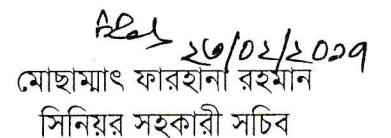 ২৬/০২/২০১৭
মোছাম্মাৎ ফারহানা রহমান
সিনিয়র সহকারী সচিব